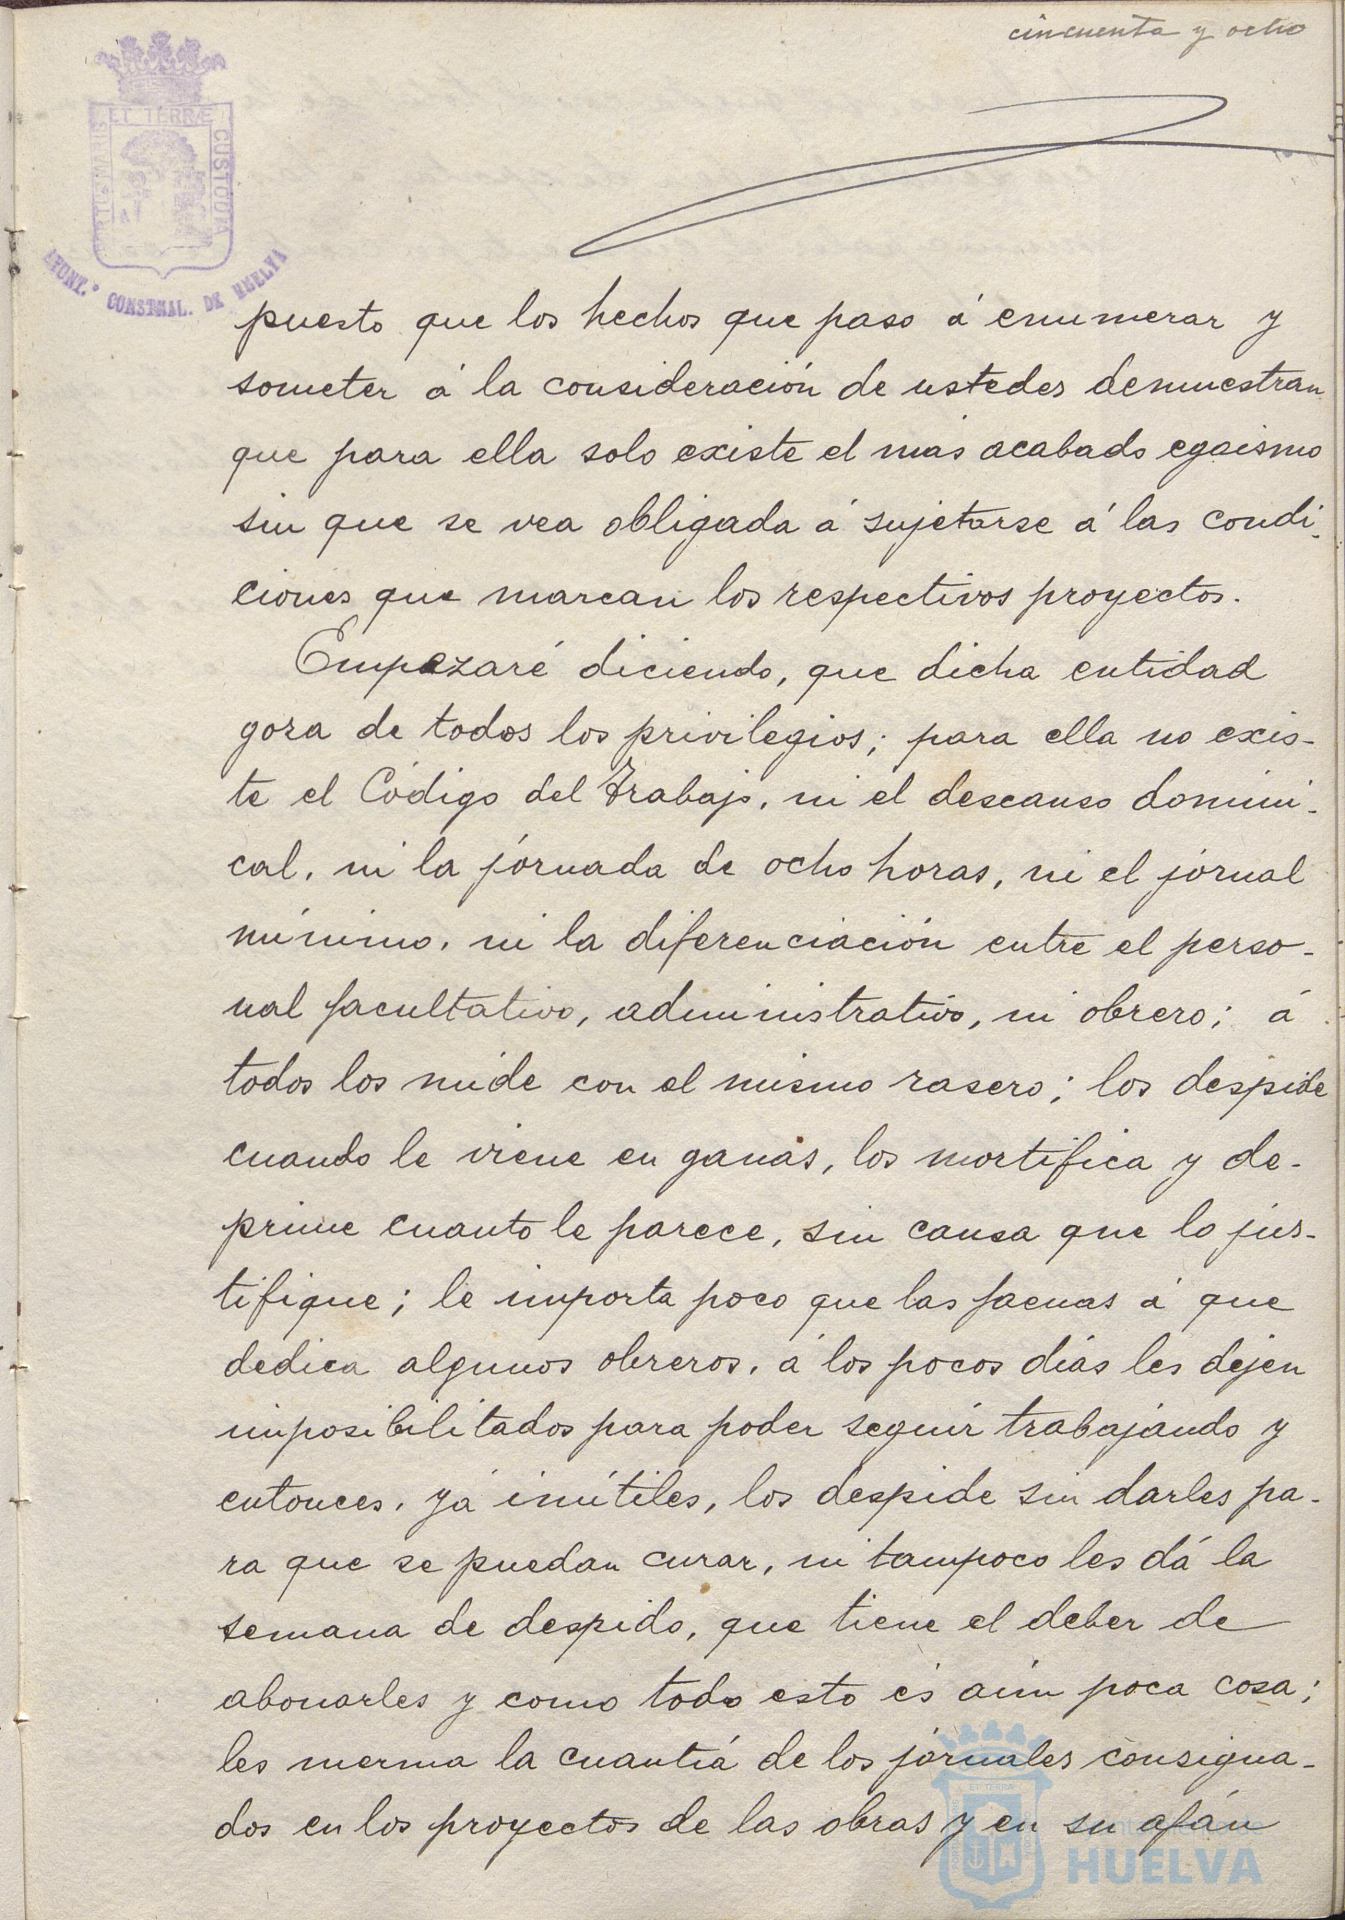 cincuenta y ocho
PORTUS MARIS ET TERRÆ CUSTODIA
AYUNT.º CONSTNAL. DE HUELVA
puesto que los hechos que paso á enumerar y
someter á la consideración de ustedes demuestran
que para ella solo existe el más acabado egoismo
sin que se vea obligada á sujetarse á las condi-
ciones que marcan los respectivos proyectos.
Empezaré diciendo, que dicha entidad
goza de todos los privilegios; para ella no exis-
te el Código del Trabajo, ni el descanso domini-
cal, ni la jórnada de ocho horas, ni el jórnal
mínimo, ni la diferenciación entre el perso-
nal facultativo, administrativo, ni obrero; á
todos los mide con el mismo rasero; los despide
cuando le viene en ganas, los mortifica y de-
prime cuanto le parece, sin causa que lo jus-
tifique; le importa poco que las faenas á que
dedica algunos obreros, á los pocos dias les dejen
imposibilitados para poder seguir trabajando y
entonces, yá inútiles, los despide sin darles pa-
ra que se puedan curar, ni tampoco les dá la
semana de despido, que tiene el deber de
abonarles y como todo esto és aún poca cosa;
les merma la cuantiá de los jórnales consigna-
dos en los proyectos de las obras y en su afán
ET TERRÆ
Ayuntamiento de
HUELVA